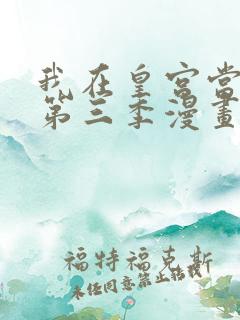 我在皇宫当
第三季漫畫
福特福克斯
未经同意禁止转载